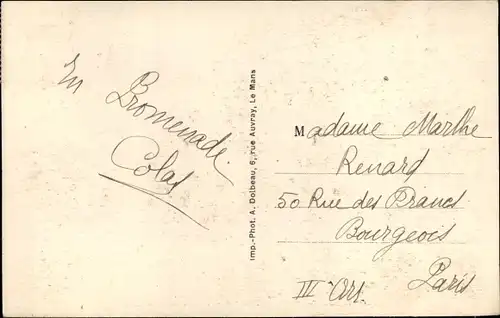 En
Promenade
Colas
Imp.-Phot. A. Dolbeau, 6, rue Auvray, Le Mans
Madame Marthe
Renard
50 Rue des Francs
Bourgeois
III Arr.
Paris